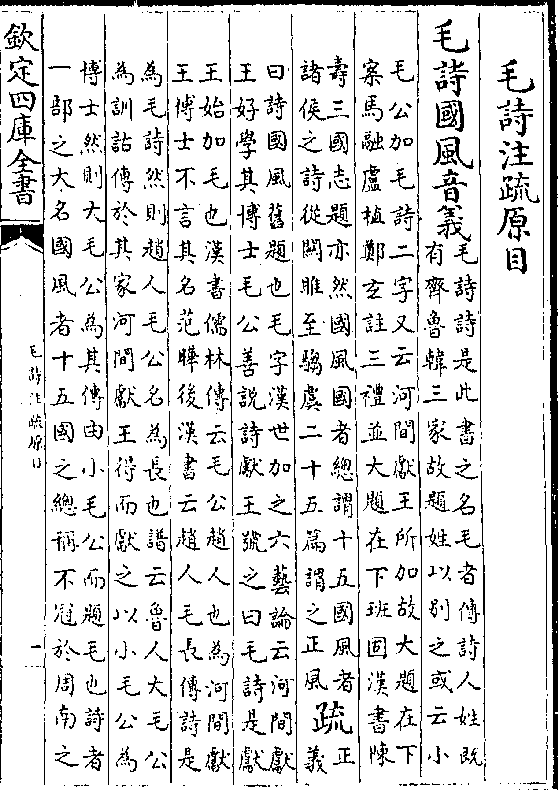 毛詩注疏原目
毛詩國風音義
毛詩詩是此書之名毛者傳詩人姓既
有齊魯韓三家故題姓以别之或云小
毛公加毛詩二字又云河間獻王所加故大題在下
案馬融盧植鄭玄註三禮並大題在下班固漢書陳
壽三國志題亦然國風國者總謂十五國風者
諸侯之詩從關雎至騶虞二十五篇謂之正風
疏
正
義
曰詩國風舊題也毛字漢世加之六藝論云河間獻
王好學其博士毛公善説詩獻王號之曰毛詩是獻
王始加毛也漢書儒林傳云毛公趙人也為河間獻
王博士不言其名范曄後漢書云趙人毛長傳詩是
為毛詩然則趙人毛公名為長也譜云魯人大毛公
為訓詁傳於其家河間獻王得而獻之以小毛公為
博士然則大毛公為其傳由小毛公而題毛也詩者
一部之大名國風者十五國之總稱不冠於周南之
欽定四庫全書
毛詩注疏原目
一